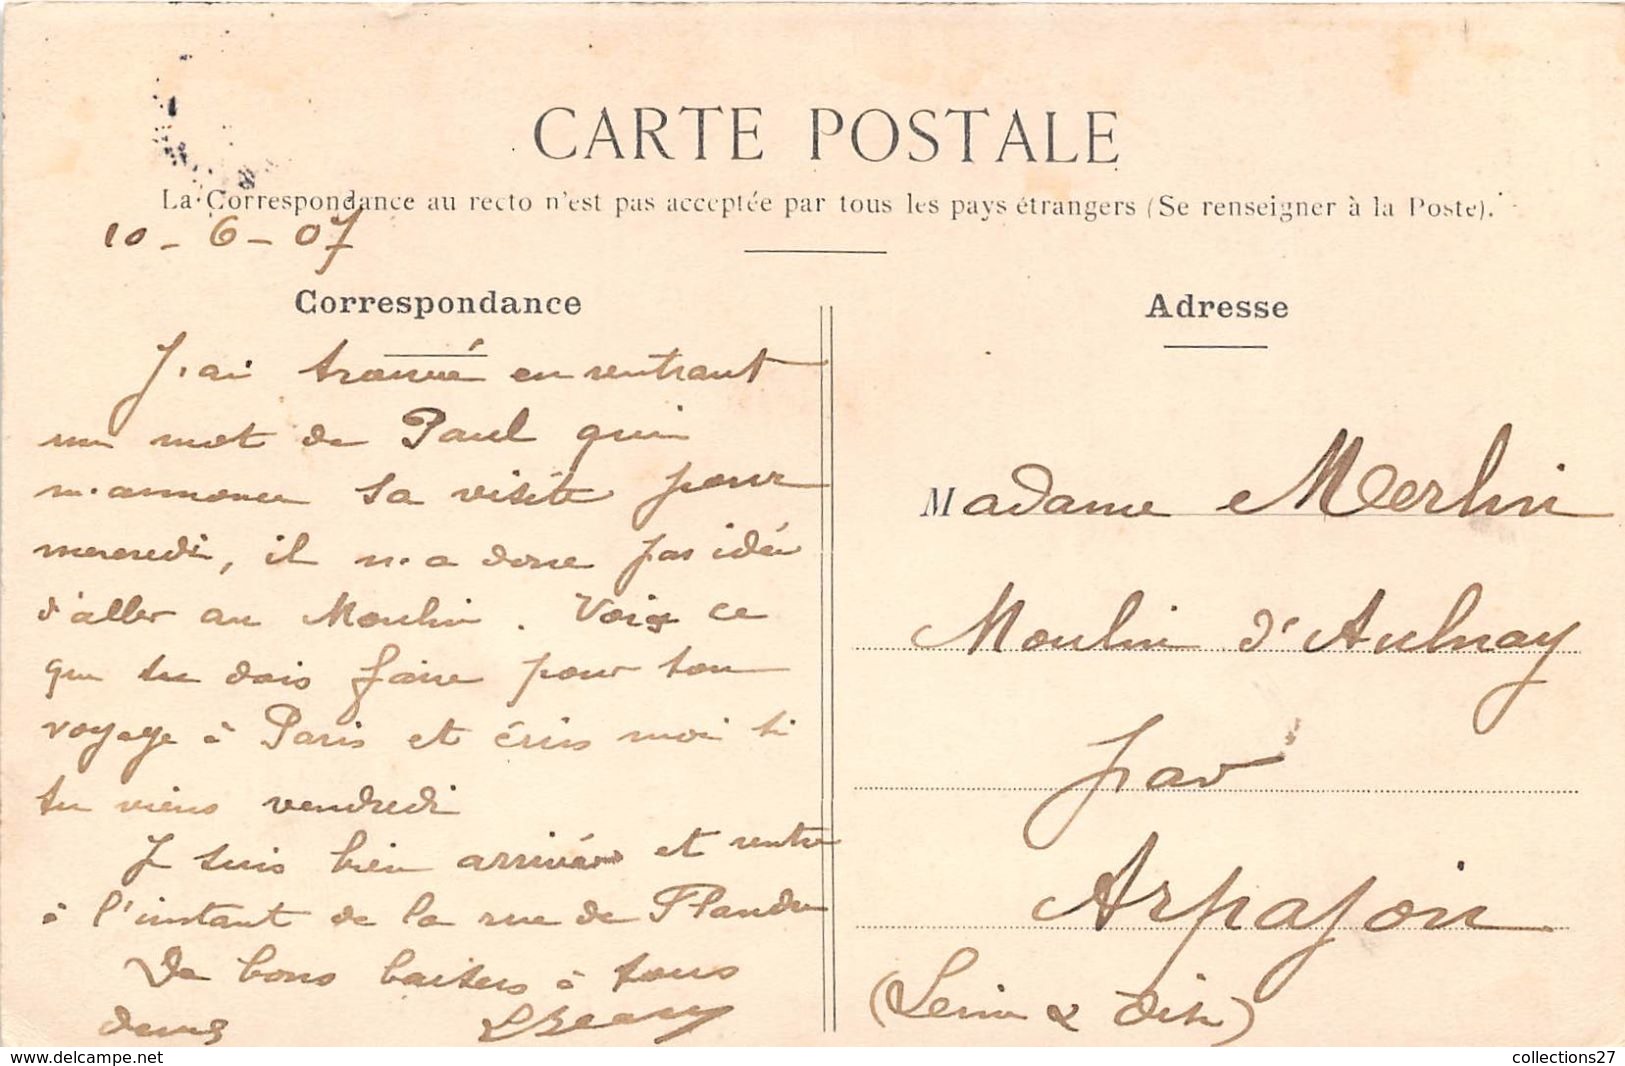 CARTE POSTALE
La Correspondance au recto n'est pas acceptée par tous les pays étrangers (Se renseigner à la Poste).
10 - 6 - 07
Correspondance
J'ai trouvé en rentrant
un mot de Paul qui
m'annonce sa visite pour
mercredi, il n'a donc pas idée
d'aller au Moulin. Vois ce
que tu dois faire pour ton
voyage à Paris et écris moi si
tu viens vendredi
Je suis bien arrivée et rentre
à l'instant de la rue de Flandre
De bons baisers à tous
Adresse
Madame Merlin
Moulin d'Aulnay
par
Arpajon
(Seine & Oise)
collections27
www.delcampe.net